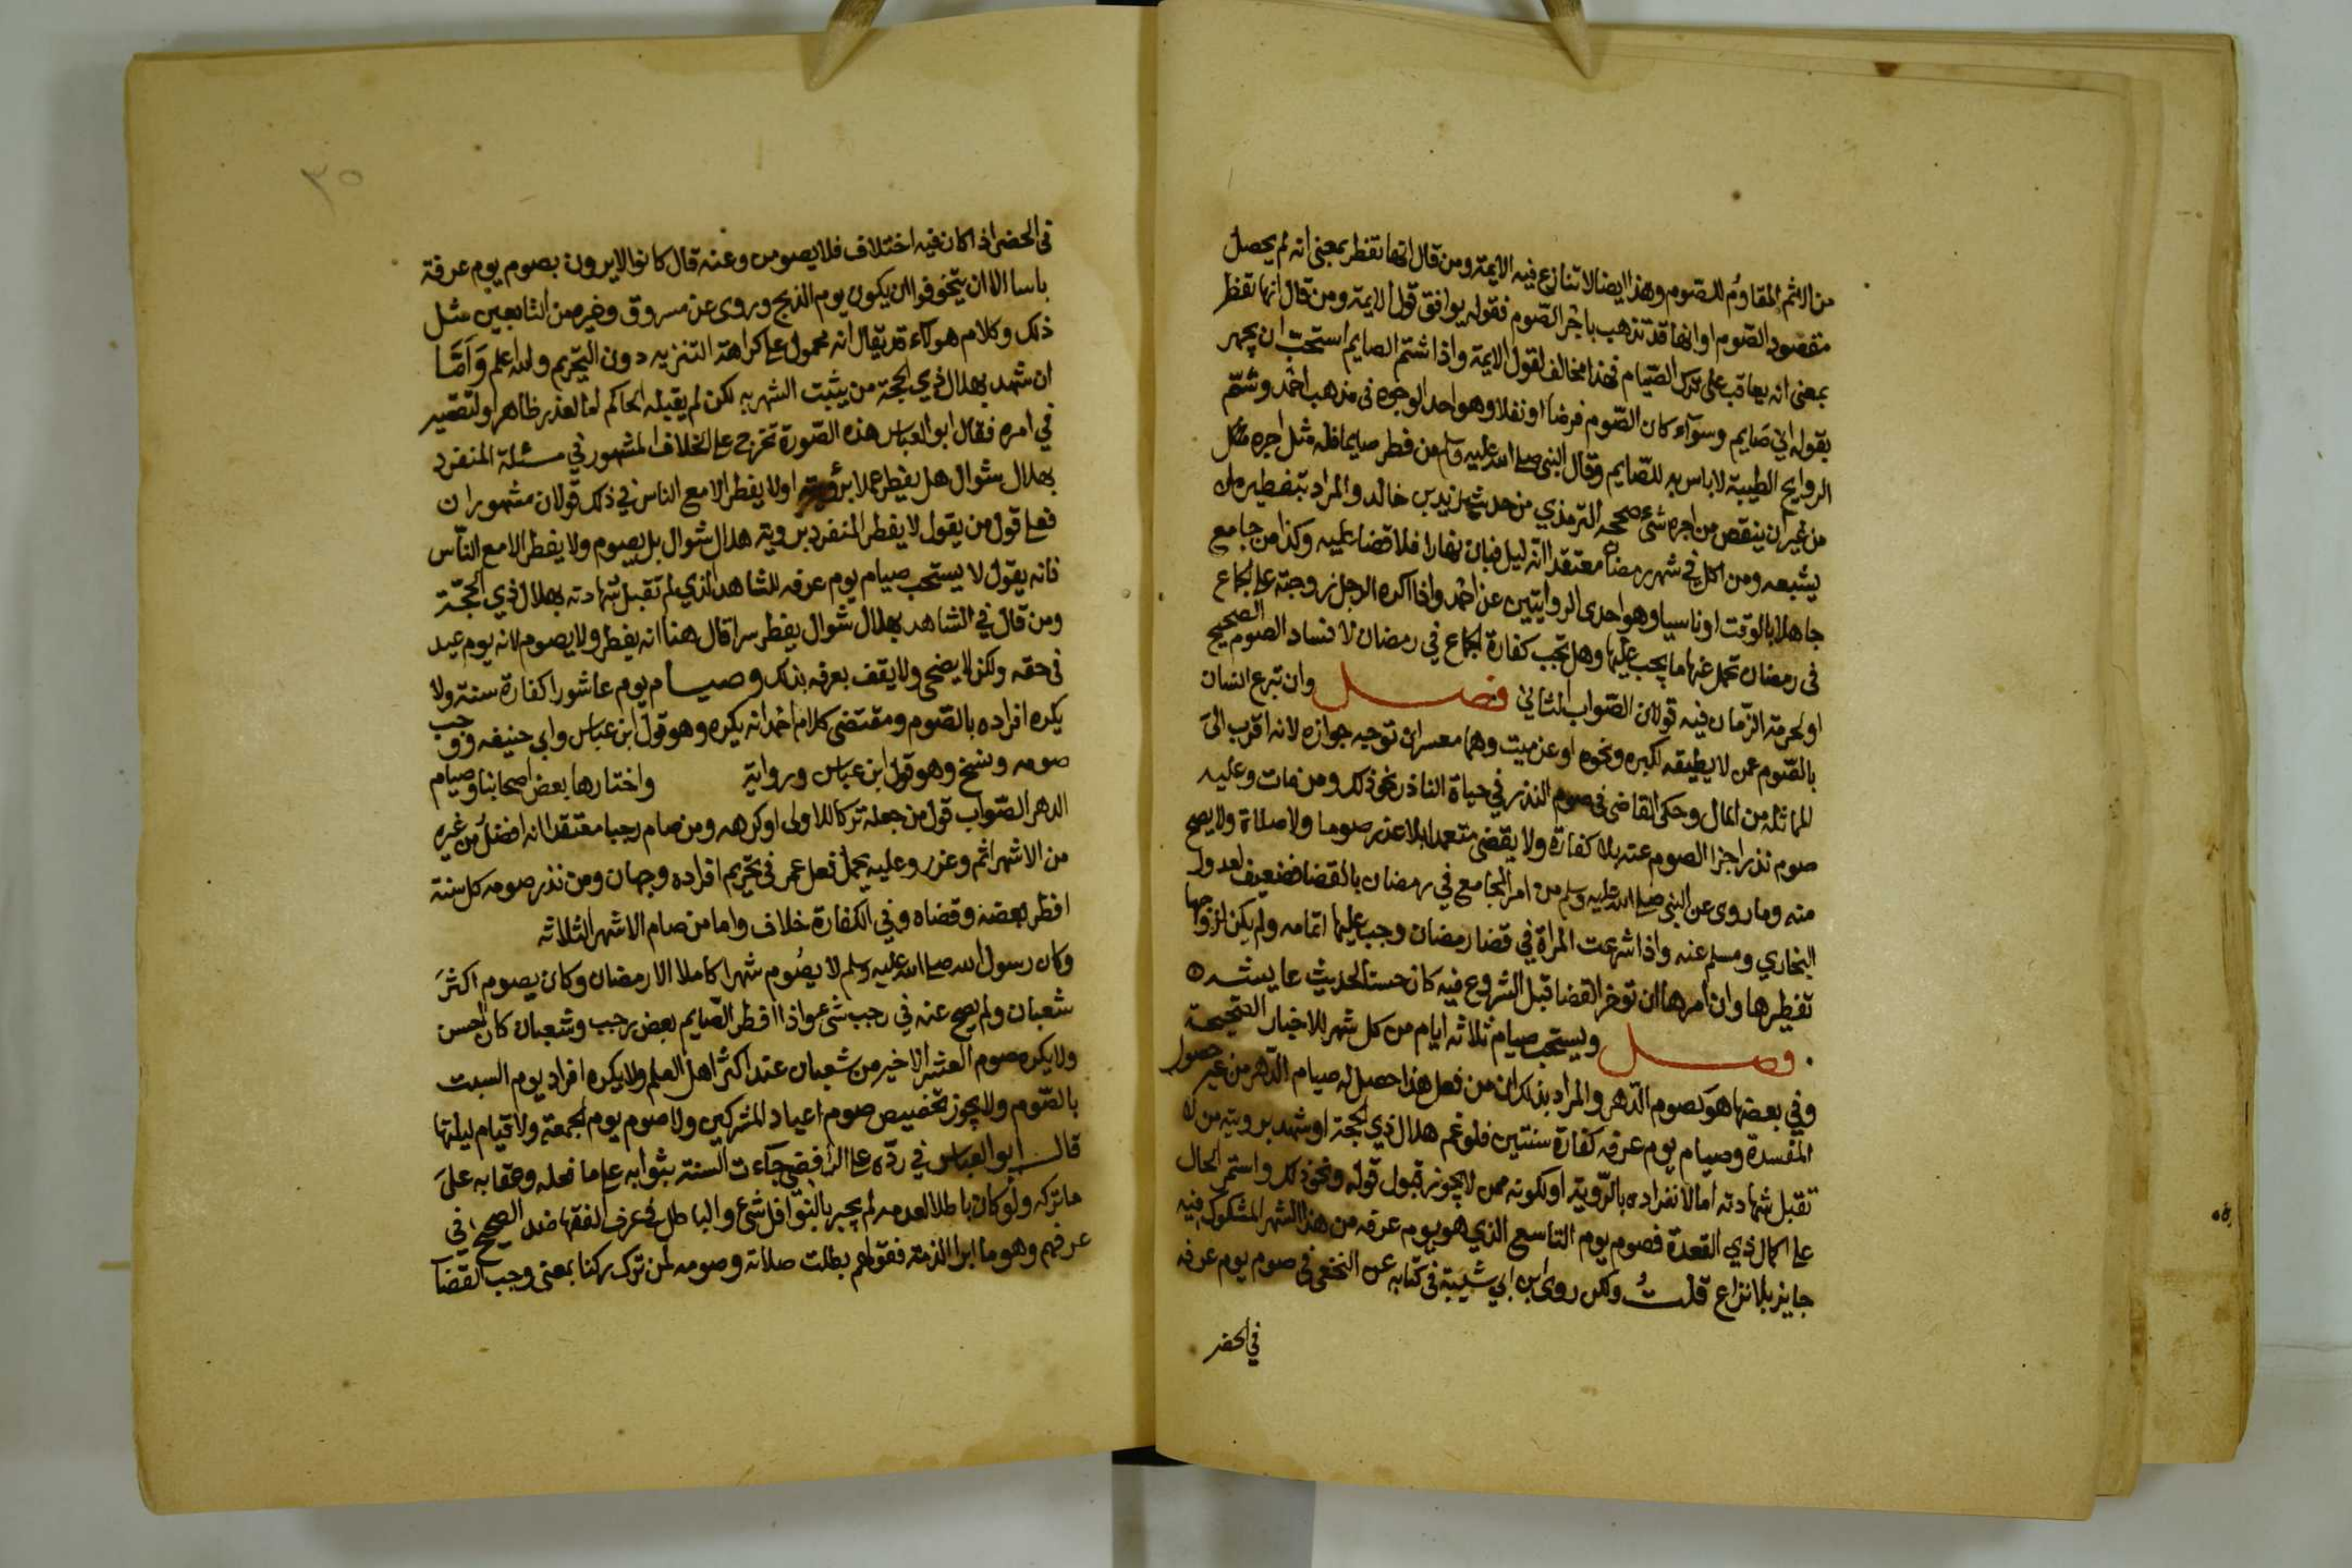 من الاثم المقاوم للصوم وهذا ايضا لا تنازع فيه الايمة ومن قال انها تفطر بمعنى انه لم يحصل
مقصود الصوم او انها قد تذهب باجر الصوم فقوله يوافق قول الايمة ومن قال انها تفطر
بمعنى انه يعاقب على ترك الصيام فهذا مخالف لقول الايمة واذا شتم الصايم استحب ان يجهر
بقوله اني صايم وسواء كان الصوم فرضا او نفلا وهو احد الوجوه في مذهب احمد وشم
الروايح الطيبة لا باس به للصايم وقال النبي صلى الله عليه وسلم من فطر صايما فله مثل اجره
من غير ان ينقص من اجره شيء صححه الترمذي من حديث زيد بن خالد والمراد بتفطيره ان
يشبعه ومن اكل في شهر رمضان معتقدا انه ليل فبان نهارا فلا قضا عليه وكذا من جامع
جاهلا بالوقت او ناسيا وهو احدى الروايتين عن احمد واذا اكره الرجل زوجته على الجماع
في رمضان تحمل عنها ما يجب عليها وهل تجب كفارة الجماع في رمضان لافساد الصوم الصحيح
او لحرمة الزمان فيه قولان الصواب الثاني فصل وان تبرع انسان
بالصوم عمن لا يطيقه لكبره ونحوه او عن ميت وهما معسران توجه جوازه لانه اقرب الى
المماثلة من المال وحكى القاضي في صوم النذر في حياة الناذر نحو ذلك ومن مات وعليه
صوم نذر اجزا الصوم عنه بلا كفارة ولا يقضي متعمدا بلا عذر صوما ولا صلاة ولا يصح
منه وما روي عن النبي صلى الله عليه وسلم من امر المجامع في رمضان بالقضا فضعيف لعدول
البخاري ومسلم عنه واذا شرعت المراة في قضا رمضان وجب عليها اتمامه ولم يكن لزوجها
تفطيرها وان امرها ان توخر القضا قبل الشروع فيه كان حسنا لحديث عايشه
فصل ويستحب صيام ثلاثه ايام من كل شهر للاخبار الصحيحة
وفي بعضها هو كصوم الدهر والمراد بذلك ان من فعل هذا حصل له صيام الدهر من غير حصول
المفسدة وصيام يوم عرفه كفارة سنتين فلو غم هلال ذي الحجة او شهد برويته من لا
تقبل شهادته اما لانفراده بالروية او لكونه ممن لا يجوز قبول قوله ونحو ذلك واستمر الحال
على اكمال ذي القعدة فصوم يوم التاسع الذي هو يوم عرفه من هذا الشهر المشكوك فيه
جايز بلا نزاع قلت ولكن روى ابن ابي شيبة في كتابه عن النخعي في صوم يوم عرفه
في الحضر
٣٥
في الحضر اذا كان فيه اختلاف فلا يصومن وعنه قال كانوا لا يرون بصوم يوم عرفة
باسا الا ان يتخوفوا ان يكون يوم الذبح وروى عن مسروق وغيره من التابعين مثل
ذلك وكلام هولاء قد يقال انه محمول على كراهة التنزيه دون التحريم والله اعلم واما
ان شهد بهلال ذي الحجة من يثبت الشهر به لكن لم يقبله الحاكم اما لعذر ظاهر او لتقصير
في امره فقال ابو العباس هذه الصورة تخرج على الخلاف المشهور في مسئلة المنفرد
بهلال شوال هل يفطر عملا برؤيته او لا يفطر الا مع الناس في ذلك قولان مشهوران
فعلى قول من يقول لا يفطر المنفرد برويته هلال شوال بل يصوم ولا يفطر الا مع الناس
فانه يقول لا يستحب صيام يوم عرفه للشاهد الذي لم تقبل شهادته بهلال ذي الحجة
ومن قال في الشاهد بهلال شوال يفطر سرا قال هنا انه يفطر ولا يصوم لانه يوم عيد
في حقه ولكن لا يضحي ولا يقف بعرفه بذلك وصيام يوم عاشورا كفارة سنة ولا
يكره افراده بالصوم ومقتضى كلام احمد انه يكره وهو قول ابن عباس وابي حنيفه ووجب
صومه ونسخ وهو قول ابن عباس ورواية واختارها بعض اصحابنا وصيام
الدهر الصواب قول من جعله تركا للاولى او كرهه ومن صام رجبا معتقدا انه افضل من غيره
من الاشهر اثم وعزر وعليه يحمل فعل عمر في تحريم افراده وجهان ومن نذر صومه كل سنة
افطر بعضه وقضاه وفي الكفارة خلاف واما من صام الاشهر الثلاثه
وكان رسول الله صلى الله عليه وسلم لا يصوم شهرا كاملا الا رمضان وكان يصوم اكثر
شعبان ولم يصح عنه في رجب شيء واذا افطر الصايم بعض رجب وشعبان كان احسن
ولا يكره صوم العشر الاخير من شعبان عند اكثر اهل العلم ولا يكره افراد يوم السبت
بالصوم ولا يجوز تخصيص صوم اعياد المشركين ولا صوم يوم الجمعة ولا قيام ليلتها
قال ابو العباس في رده على الرافضي جاءت السنة بثوابه على ما فعله وعقابه على
ما تركه ولو كان باطلا لعدمه لم يجبر بالنوافل شيء والباطل في عرف الفقها ضد الصحيح في
عرفهم وهو ما ابرا الذمة فقولهم بطلت صلاته وصومه لمن ترك ركنا بمعنى وجب القضا